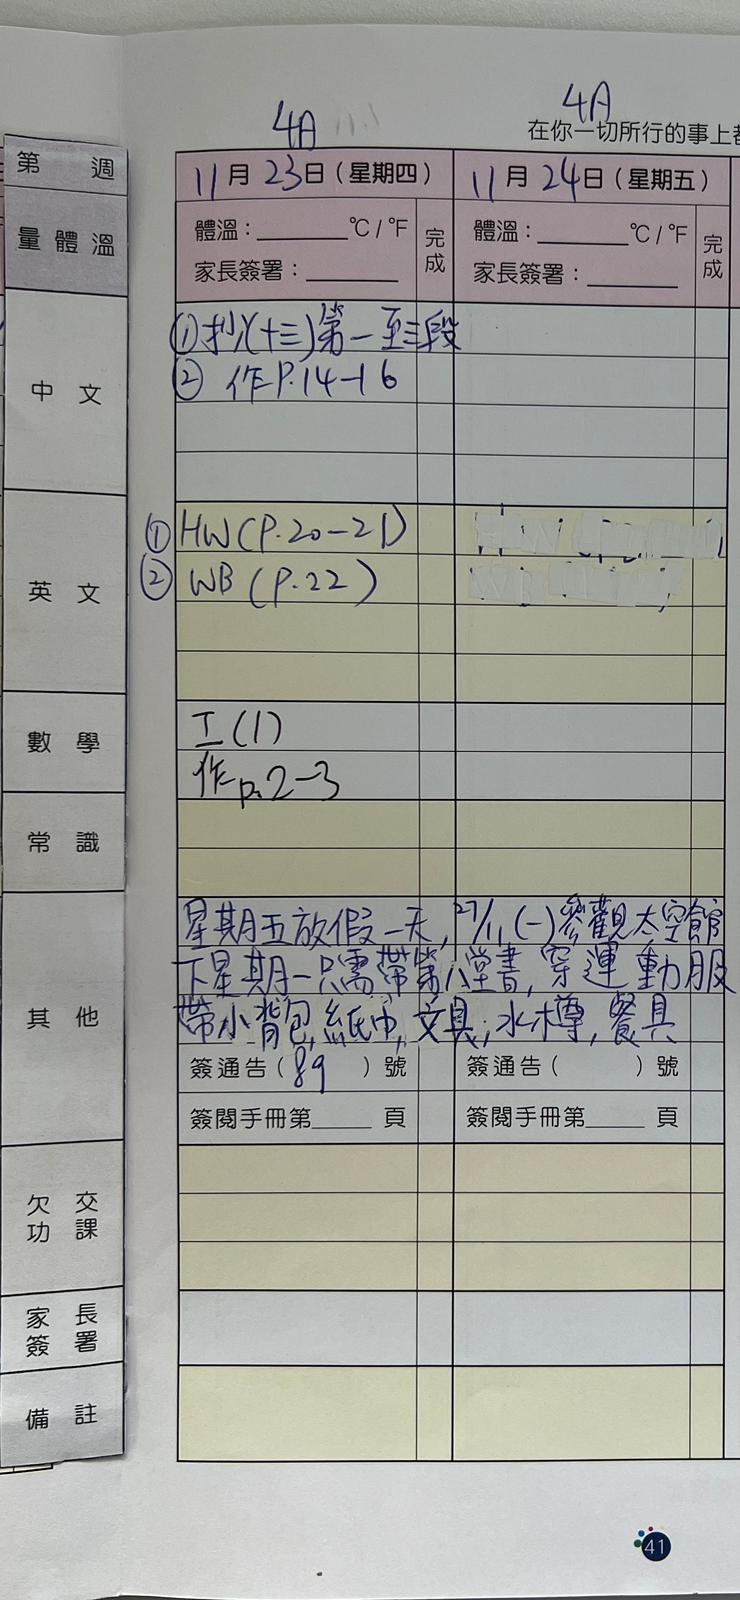 4A
4A
在你一切所行的事上都
第 週
11月23日(星期四)
11月24日(星期五)
量體溫
體溫：______°C/°F
家長簽署：______
完成
體溫：______°C/°F
家長簽署：______
完成
中文
①抄(十三)第一至三段
② 作P.14-16
英文
① HW(P.20-21)
② WB(P.22)
數學
工(1)
作p.2-3
常識
其他
星期五放假一天, 27/11(一)參觀太空館
下星期一只需帶第八堂書, 穿運動服
帶小背包, 紙巾, 文具, 水樽, 餐具
簽通告(89)號
簽通告( )號
簽閱手冊第____頁
簽閱手冊第____頁
欠交功課
家長簽署
備註
41